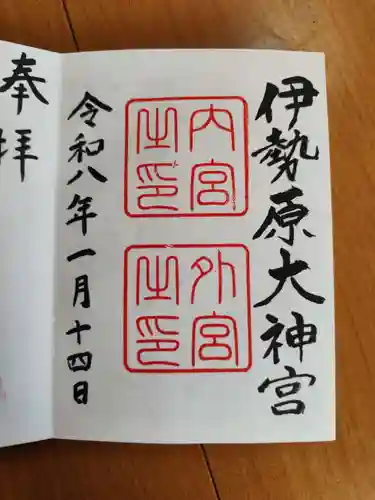 伊勢原大神宮
内宮之印
外宮之印
令和八年一月十四日
奉拝